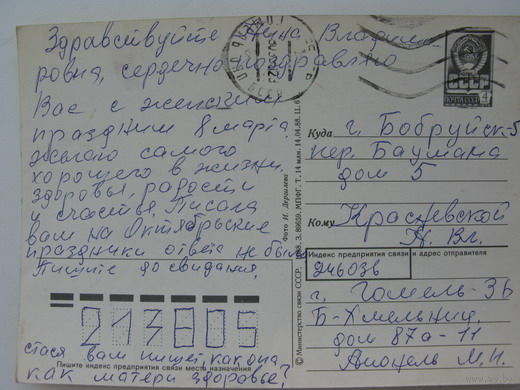 Здравствуйте Нина Владими
ровна, сердечно поздравляю
Вас с женским
праздник 8 марта.
желаю самого
хорошего в жизни,
здоровья, радости
и счастья. Писала
вам на Октябрьские
праздники ответа не было
Пишите до свидания.
СССР
ПОЧТА СССР
4
Куда г. Бобруйск-5
пер. Баумана
дом 5
Кому Красневской
Н. Вл.
Индекс предприятия связи и адрес отправителя
246036
г. Гомель-36
Б-Хмельниц.
дом 87а-11
М.Н.
213805
Пишите индекс предприятия связи места назначения
стася вам пишет, как она
как матери здоровье?
© Министерство связи СССР, 1988. З. 86659. МПФГ. Т. 14 млн. 14.04.88. Ц. 6
Фото И. Дергилева